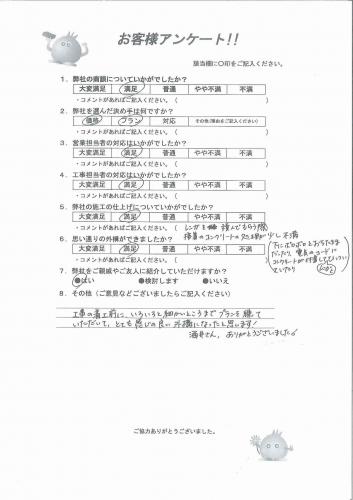 お客様アンケート!!
該当欄に○印をご記入ください。
1. 弊社の商談についていかがでしたか?
大変満足 満足 普通 やや不満 不満
・コメントがあればご記入ください。(
2. 弊社を選んだ決め手は何ですか?
価格 プラン 対応 その他(理由をご記入ください)
・コメントがあればご記入ください。(
3. 営業担当者の対応はいかがでしたか?
大変満足 満足 普通 やや不満 不満
・コメントがあればご記入ください。(
4. 工事担当者の対応はいかがでしたか?
大変満足 満足 普通 やや不満 不満
・コメントがあればご記入ください。(
5. 弊社の施工の仕上げについていかがでしたか?
大変満足 満足 普通 やや不満 不満
・コメントがあればご記入ください。( レンガを 積んでもらう際
接着のコンクリートの 少し不満
6. 思い通りの外構ができましたか?
大変満足 満足 普通 やや不満 不満
・コメントがあればご記入ください。(
下にボロボロとおちたまま
だったり、電気のコードに
コンクリートが付着して
いたり
7. 弊社をご親戚やご友人に紹介していただけますか?
●はい ●検討します ●いいえ
8. その他(ご意見などございましたらご記入ください)
工事の着工前に、いろいろと細かいところまでプランを練って
いただいて、とても感じの良い外構になったと思います!
酒井さん、ありがとうございました
ご協力ありがとうございました。